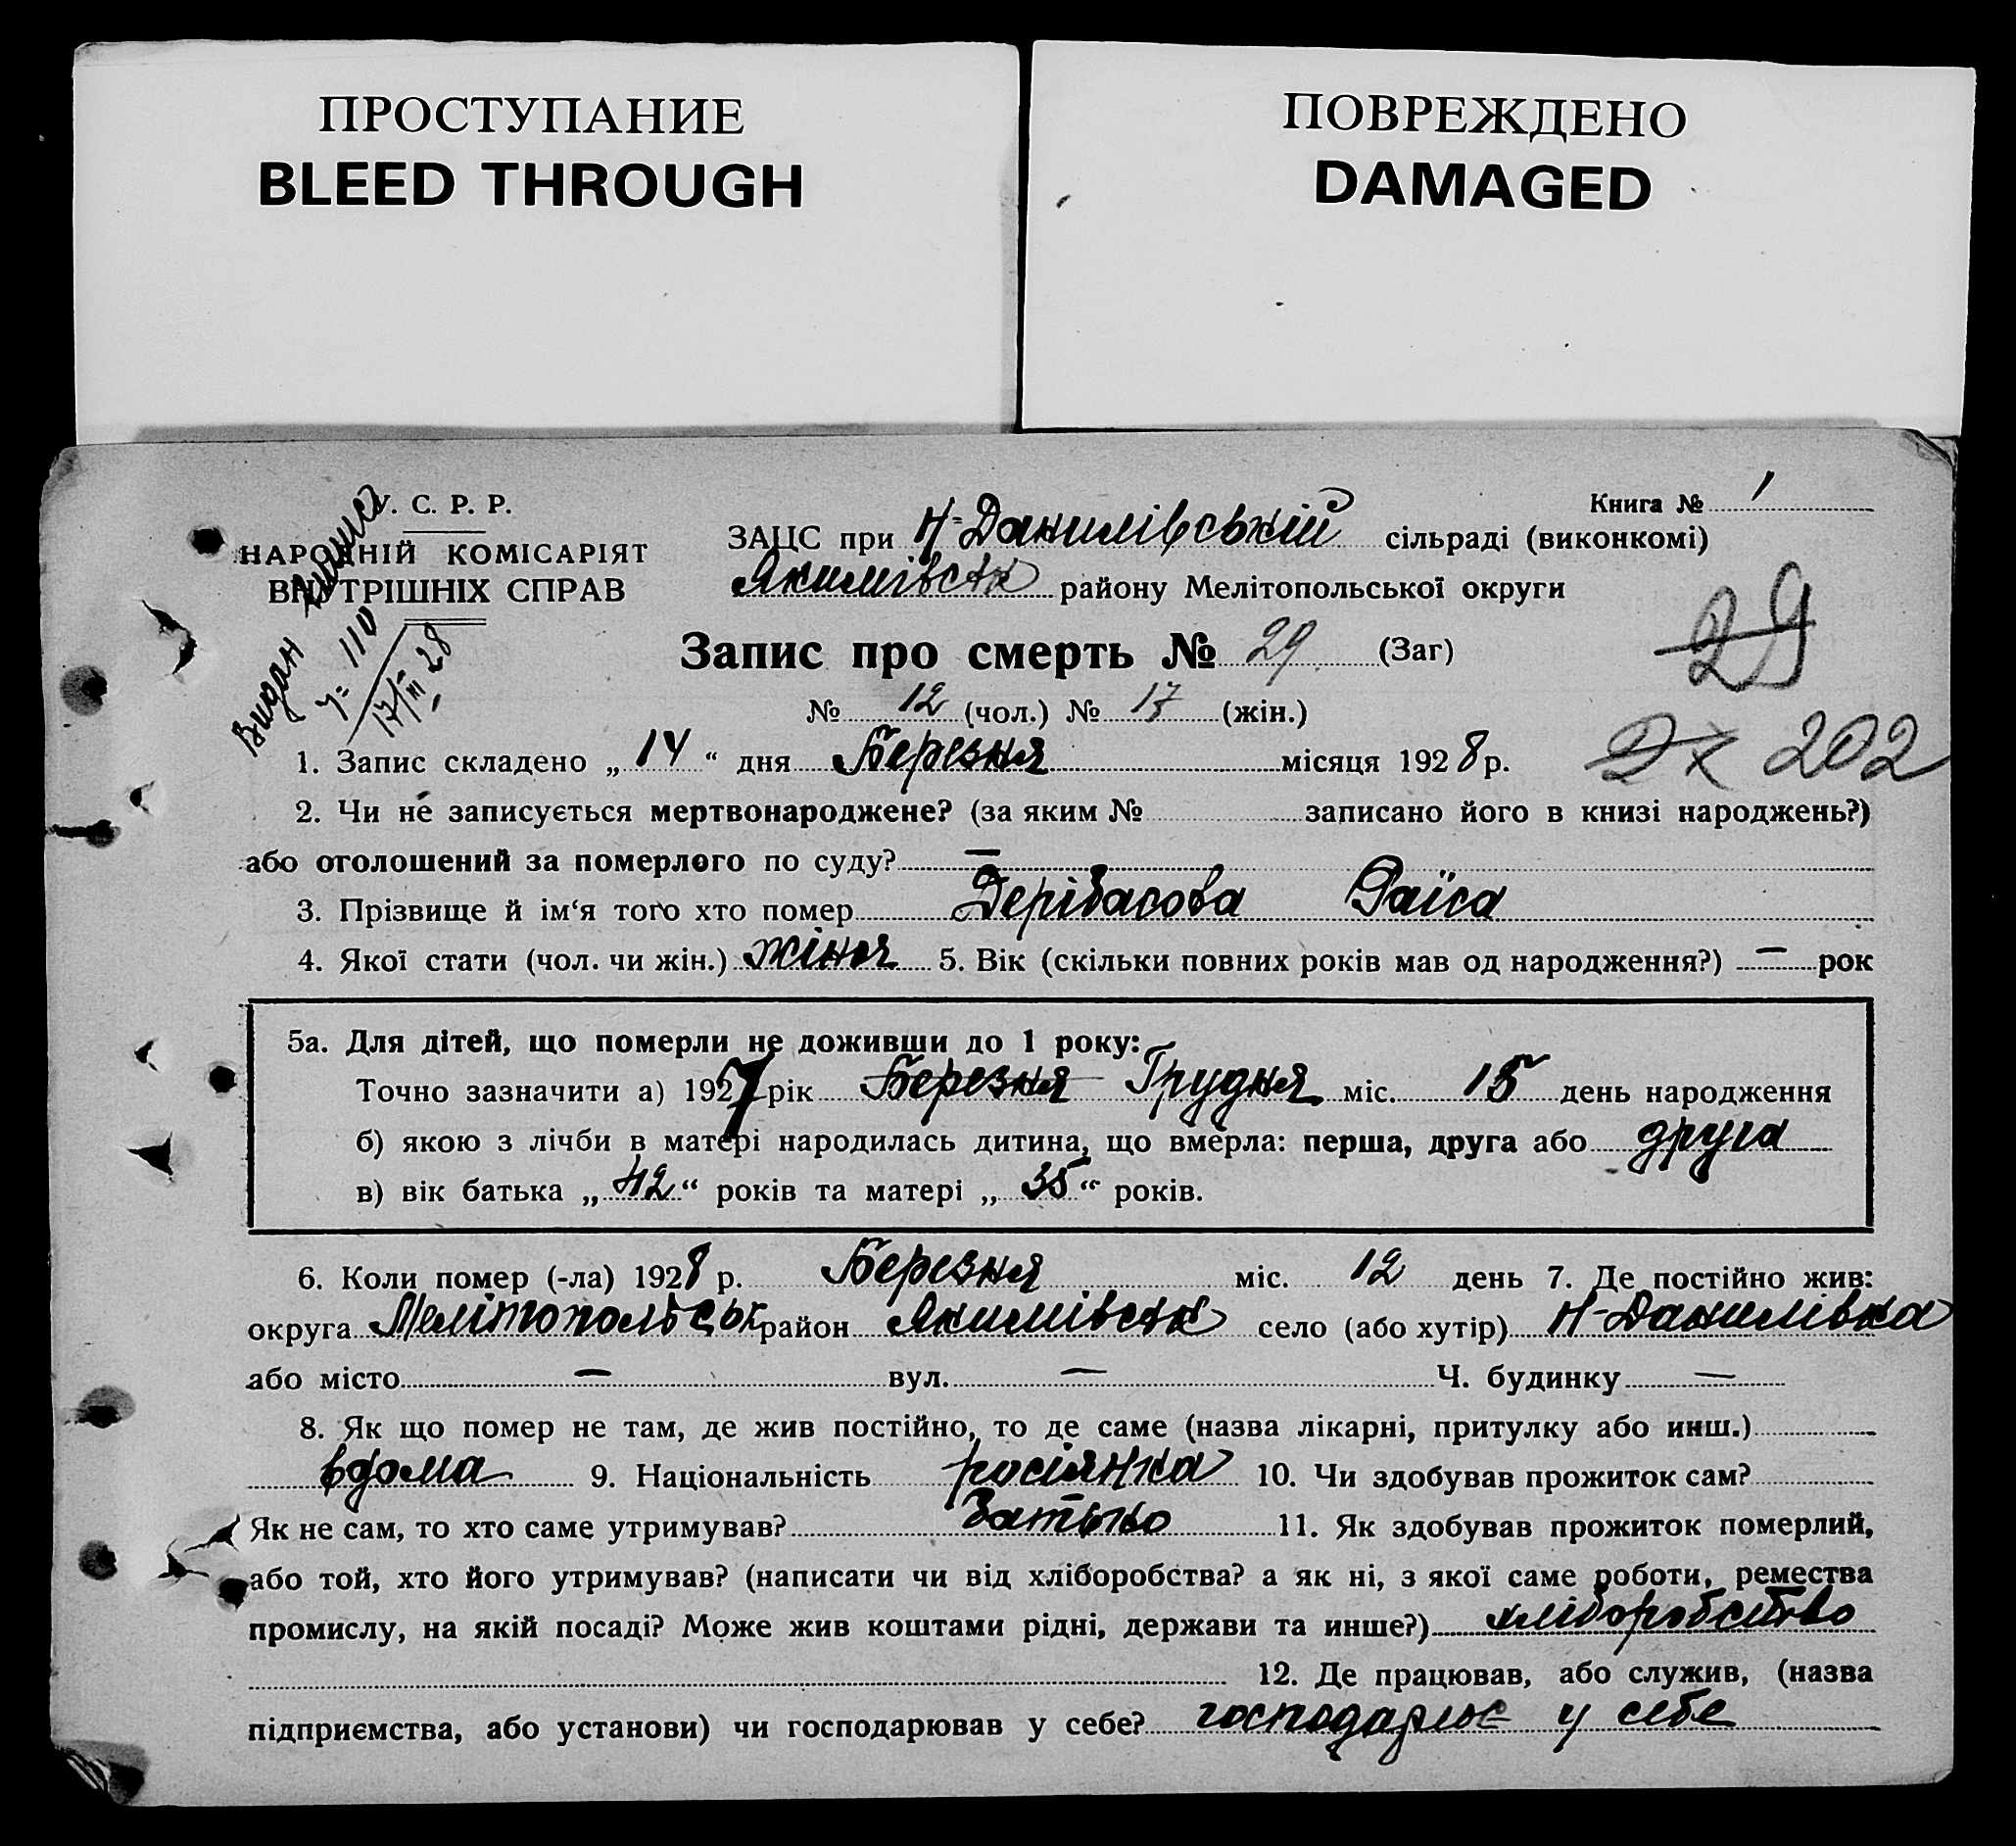 ПРОСТУПАНИЕ
BLEED THROUGH
ПОВРЕЖДЕНО
DAMAGED
У. С. Р. Р.
НАРОДНІЙ КОМІСАРІЯТ
ВНУТРІШНІХ СПРАВ
Видан
110
17/III 28
Книга № 1
ЗАЦС при Н-Данилівській сільраді (виконкомі)
Якимівськ району Мелітопольської округи
Запис про смерть № 29 (Заг)
29
№ 12 (чол.) № 17 (жін.)
202
1. Запис складено „ 14 “ дня Березня місяця 1928 р.
2. Чи не записується мертвонароджене? (за яким № записано його в книзі народжень?)
або оголошений за померлого по суду? —
3. Прізвище й ім‘я того хто помер Дерібасова Раїса
4. Якої стати (чол. чи жін.) жіноч 5. Вік (скільки повних років мав од народження?) — рок
5а. Для дітей, що померли не доживши до 1 року:
Точно зазначити а) 1927 рік Березня Грудня міс. 15 день народження
б) якою з лічби в матері народилась дитина, що вмерла: перша, друга або друга
в) вік батька „ 42 “ років та матері „ 35 “ років.
6. Коли помер (-ла) 1928 р. Березня міс. 12 день 7. Де постійно жив:
округа Мелітопольськ район Якимівськ село (або хутір) Н-Данилівка
або місто — вул. — Ч. будинку —
8. Як що помер не там, де жив постійно, то де саме (назва лікарні, притулку або инш.)
вдома 9. Національність росіянка 10. Чи здобував прожиток сам?
Як не сам, то хто саме утримував? Батько 11. Як здобував прожиток померлий,
або той, хто його утримував? (написати чи від хліборобства? а як ні, з якої саме роботи, ремества
промислу, на якій посаді? Може жив коштами рідні, держави та инше?) хліборобство
12. Де працював, або служив, (назва
підприємства, або установи) чи господарював у себе? господарює у себе